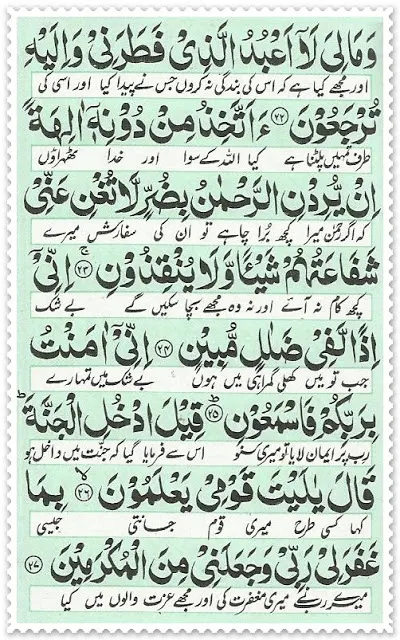 وَمَالِیَ لَاۤ اَعۡبُدُ الَّذِیۡ فَطَرَنِیۡ وَاِلَیۡهِ
اور مجھے کیا ہے کہ اس کی بندگی نہ کروں جس نے پیدا کیا اور اسی کی
تُرۡجَعُوۡنَ ﴿۲۲﴾ ءَاَتَّخِذُ مِنۡ دُوۡنِهٖۤ اٰلِهَةً
طرف تمہیں پلٹنا ہے کیا اللہ کے سوا اور خدا ٹھہراؤں
اِنۡ یُّرِدۡنِ الرَّحۡمٰنُ بِضُرٍّ لَّا تُغۡنِ عَنِّیۡ
کہ اگر رحمٰن میرا کچھ بُرا چاہے تو ان کی سفارش میرے
شَفَاعَتُهُمۡ شَیۡئًا وَّلَا یُنۡقِذُوۡنِ ﴿۲۳﴾ اِنِّیۡۤ
کچھ کام نہ آئے اور نہ وہ مجھے بچا سکیں گے بے شک
اِذًا لَّفِیۡ ضَلٰلٍ مُّبِیۡنٍ ﴿۲۴﴾ اِنِّیۡۤ اٰمَنۡتُ
جب تو میں کھلی گمراہی میں ہوں بے شک میں تمہارے
بِرَبِّكُمۡ فَاسۡمَعُوۡنِ ﴿۲۵﴾ قِیۡلَ ادۡخُلِ الۡجَنَّةَ ؕ
رب پر ایمان لایا تو میری سنو اس سے فرمایا گیا کہ جنّت میں داخل ہو
قَالَ یٰلَیۡتَ قَوۡمِیۡ یَعۡلَمُوۡنَ ﴿۲۶﴾ بِمَا
کہا کسی طرح میری قوم جانتی جیسی
غَفَرَ لِیۡ رَبِّیۡ وَجَعَلَنِیۡ مِنَ الۡمُكۡرَمِیۡنَ ﴿۲۷﴾
میرے رب نے میری مغفرت کی اور مجھے عزت والوں میں کیا